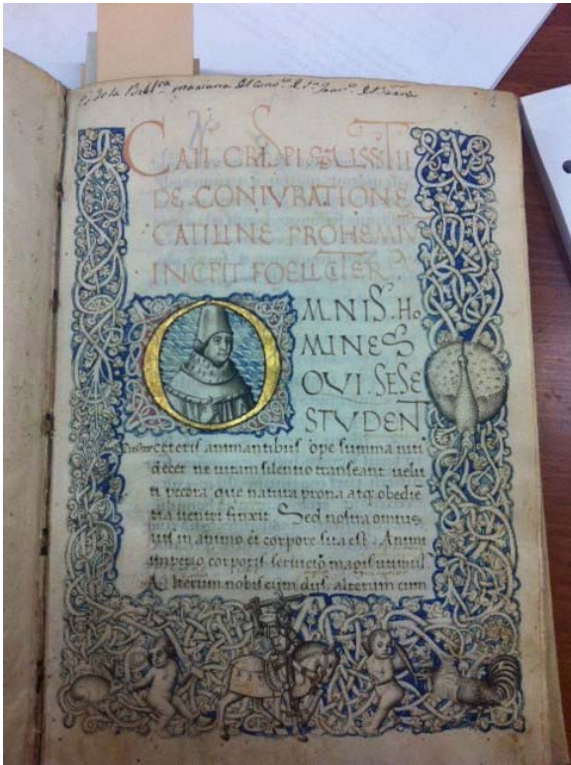 de la Bibl.ca mariana del conv.to
CAII. CRISPI SALUSTII
DE CONIVRATIONE
CATILINE PROHEMIV
INCPIT FOELICITER
OMNIS. Ho
MINES
QVI. SESE
STVDENT
ceteris animantibus ope summa niti
decet ne uitam silentio transeant uelu
ti pecora que natura prona atq; obedie
tia uentri finxit Sed nostra omnis
uis in animo et corpore sita est. Animi
imperio corporis seruicio magis utimur
Alterum nobis cum diis, alterum cum